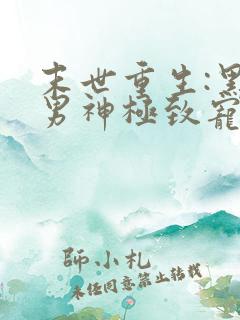 末世重生:黑
男神極致寵
師小札
未經同意禁止轉載